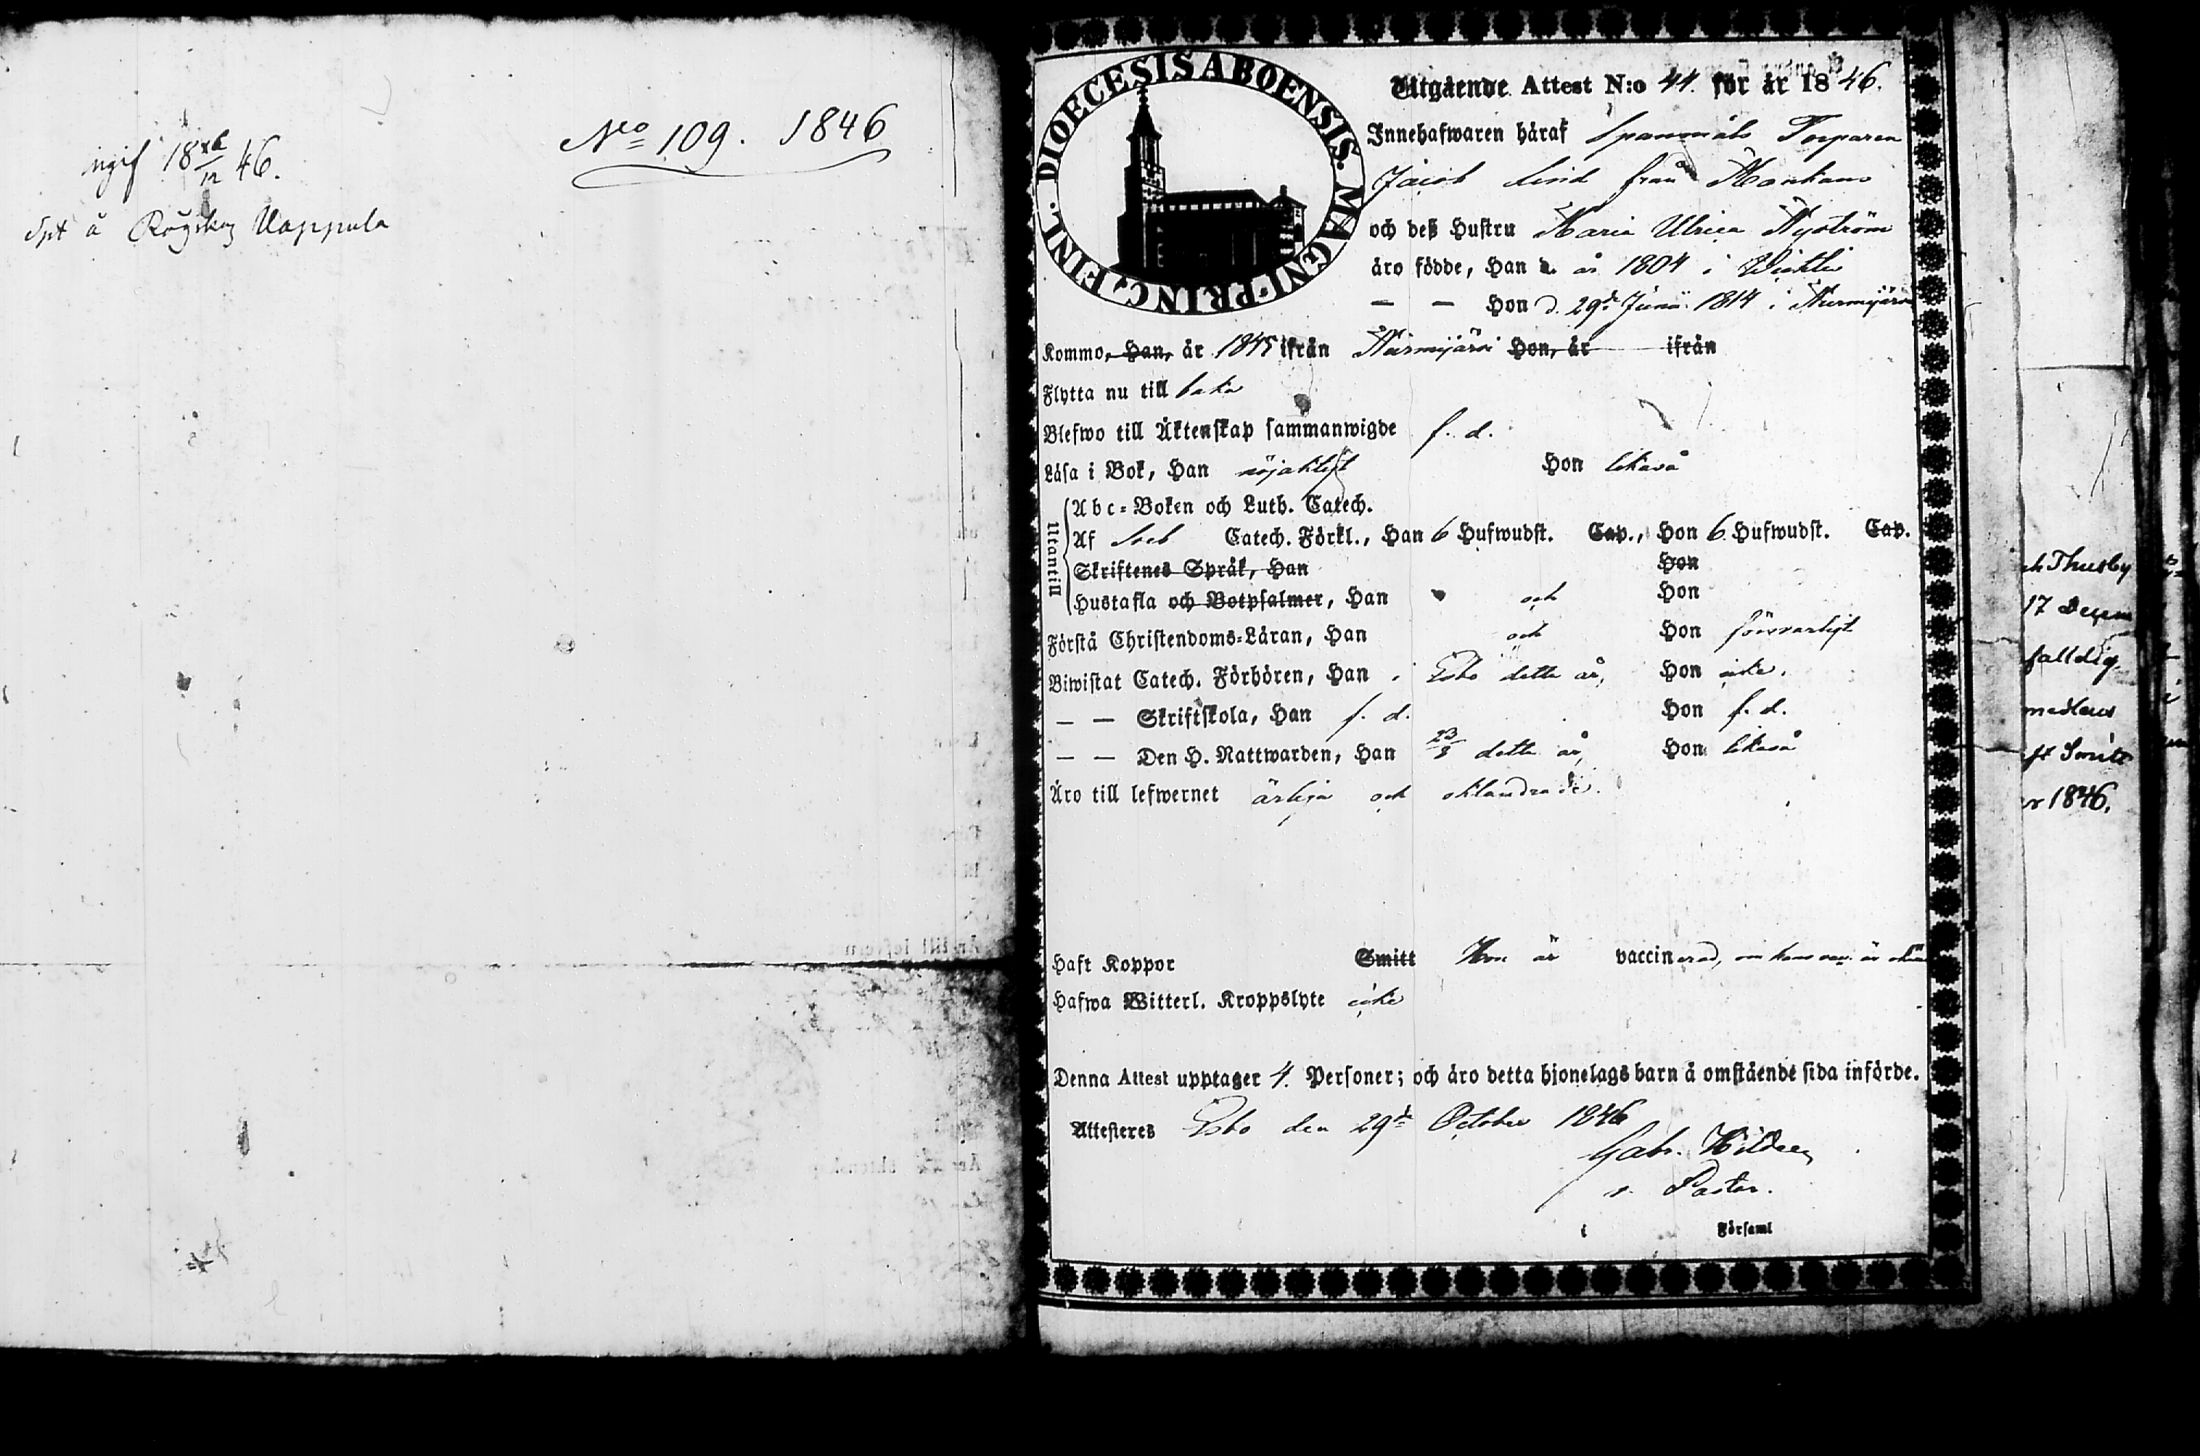 No 109. 1846
ingif 18 26/12 46.
å Rögskog Uappula
DIOECESIS ABOENSIS. MAGNI. PRINC. FINL.
Utgående Attest N:o 44. för år 1846.
Innehafwaren häraf Spannmåls Torparen
Jacob Lind från Mankans
och deß Hustru Maria Ulrica Nyström
äro födde, Han d. år 1804 i Wichtis
— — Hon d. 29de Junii 1814 i Nurmijärvi
Kommo, Han, år 1845 ifrån Nurmijärvi Hon, år ifrån
Flytta nu till baka
Blefwo till Äktenskap sammanwigde f. d.
Läsa i Bok, Han nöjaktigt Hon likaså
Utantill
Abc-Boken och Luth. Catech.
Af Sveb Catech. Förkl., Han 6 Hufwudst. Cap., Hon 6 Hufwudst. Cap.
Skriftenes Språk, Han Hon
Hustafla och Botpsalmer, Han och Hon
Förstå Christendoms-Läran, Han och Hon försvarligt
Biwistat Catech. Förhören, Han i Esbo detta år, Hon icke.
— — Skriftskola, Han f. d. Hon f. d.
— — Den H. Nattwarden, Han 23/8 detta år, Hon likaså
Äro till lefwernet ärliga och oklandrade.
Haft Koppor Smitt Hon är vaccinerad, om hans vac. är
Hafwa Witterl. Kroppslyte icke
Denna Attest upptager 4. Personer; och äro detta hjonelags barn å omstående sida införde.
Attesteres Esbo den 29de October 1846
Gabr. Hilden
v. Pastor.
i Församl
Thusby
17 Decem
falldig
medleus
ft Smitt
r 1846.